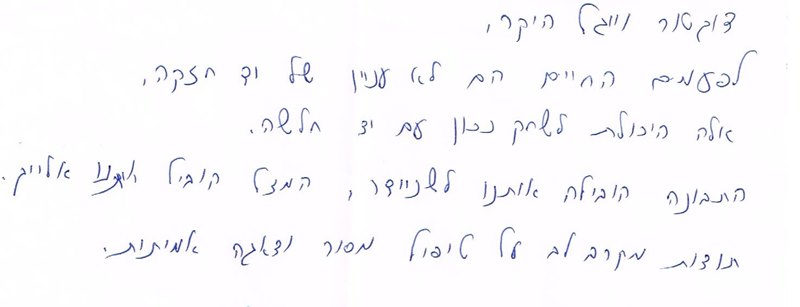 דוקטור ווייגל היקר,
לפעמים החיים הם לא עניין של יד חזקה,
אלה היכולת לשחק נכון עם יד חלשה.
התבונה הובילה אותנו לשניידר, המזל הוביל אותנו אלייך.
תודות מקרב לב על טיפול מסור ודאגה אמיתות.